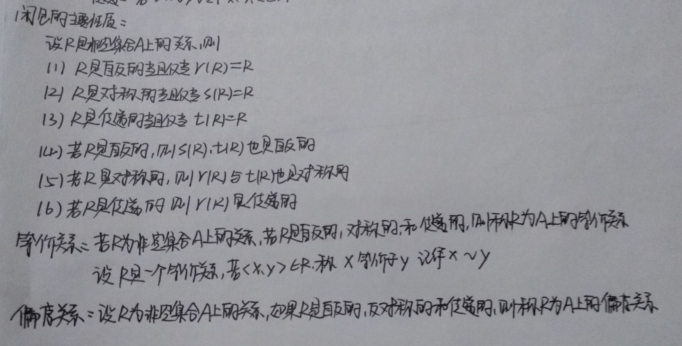 闭包的主要性质：
设R是非空集合A上的关系,则
(1) R是自反的当且仅当 r(R)=R
(2) R是对称的当且仅当 s(R)=R
(3) R是传递的当且仅当 t(R)=R
(4) 若R是自反的,则s(R),t(R)也是自反的
(5) 若R是对称的,则r(R)与t(R)也是对称的
(6) 若R是传递的 则r(R)是传递的
等价关系：若R为非空集合A上的关系,若R是自反的,对称的,和传递的,则称R为A上的等价关系
设R是一个等价关系,若<x,y>∈R.称 x等价于y 记作x~y
偏序关系：设R为非空集合A上的关系,如果R是自反的,反对称的和传递的,则称R为A上的偏序关系